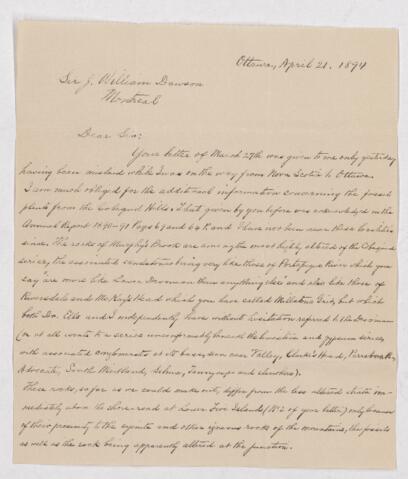 Ottawa, April 21. 1894
Sir J. William Dawson
Montreal
Dear Sir:
Your letter of March 27th was given to me only yesterday
having been mislaid while I was on the way from Nova Scotia to Ottawa.
I am much obliged for the additional information concerning the fossil
plants from the Cobequid Hills. That given by you before was acknowledged in the
Annual Report 1890-91 Pages 69 and 64 P. and I have not been near these localities
since. The rocks of Murphy's Brook are among the most highly altered of the
series, the associated sandstones being very like those of Portapique River which you
say "are more like Lower Devonian than anything else and also like those of
Riversdale and the
and which you have called Millstone Grit, but which
both Dr. Ells and I independently have without hesitation referred to the Devonian
(or at all events to a series unconformably beneath the limestone and gypsum series,
with associated conglomerate at its base, seen near Valley, Clarke's Head, Parrsboro,
Advocate, South Maitland, Selma, Tennycape and elsewhere).
These rocks, so far as we could make out, differ from the less altered strata im-
mediately above the shore road at Lower Five Islands (No 2 of your letter) only because
of their proximity to the syenite and other igneous rocks of the mountains, the fossils
as well as the rock being apparently altered at the junction.